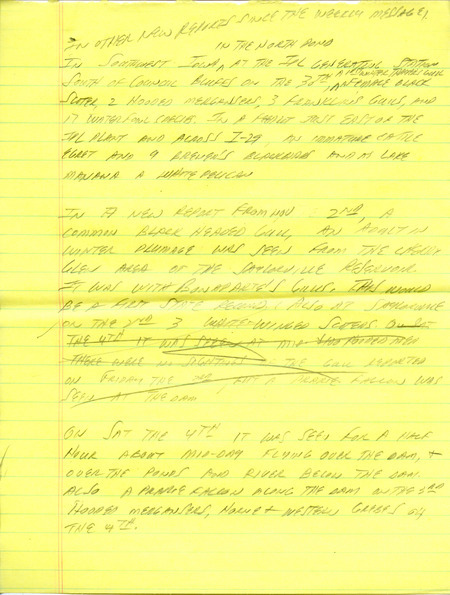 IN OTHER NEW REPORTS SINCE THE WEEKLY MESSAGE,
IN THE NORTH POND
IN SOUTHWEST IOWA, AT THE IPL GENERATING STATION
SOUTH OF COUNCIL BLUFFS ON THE 30TH, A FEMALE BLACK
SCOTER, 2 HOODED MERGANSERS, 3 FRANKLIN'S GULLS, AND
IN A FIELD JUST EAST OF THE
IPL PLANT AND ACROSS I-29, AN IMMATURE CATTLE
EGRET AND 9 BREWER'S BLACKBIRDS AND AT LAKE
MANAWA A WHITE PELICAN
IN A NEW REPORT FROM NOV 2ND, A
COMMON BLACK HEADED GULL, AN ADULT IN
WINTER PLUMAGE WAS SEEN FROM THE CHERRY
GLEN AREA OF THE SAYLORVILLE RESERVOIR
IT WAS WITH BONAPARTE'S GULLS. THIS WOULD
BE A FIRST STATE RECORD. ALSO AT SAYLORVILLE
ON THE 2ND 3 WHITE-WINGED SCOTERS. ON SAT
THE 4TH IT WAS SEEN AT MID
THERE WERE NO SIGHTINGS OF THE GULL REPORTED
ON FRIDAY THE 3RD, BUT A PRAIRIE FALCON WAS
SEEN AT THE DAM
ON SAT THE 4TH IT WAS SEEN FOR A HALF
HOUR ABOUT MID-DAY FLYING OVER THE DAM, +
OVER THE PONDS AND RIVER BELOW THE DAM.
ALSO A PRAIRIE FALCON ALONG THE DAM ON THE 3RD
HOODED MERGANSERS, HORNED + WESTERN GREBES ON
THE 4TH.